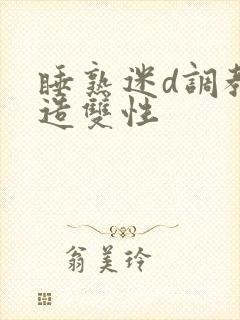 睡熟迷d調教
造雙性
翁美玲